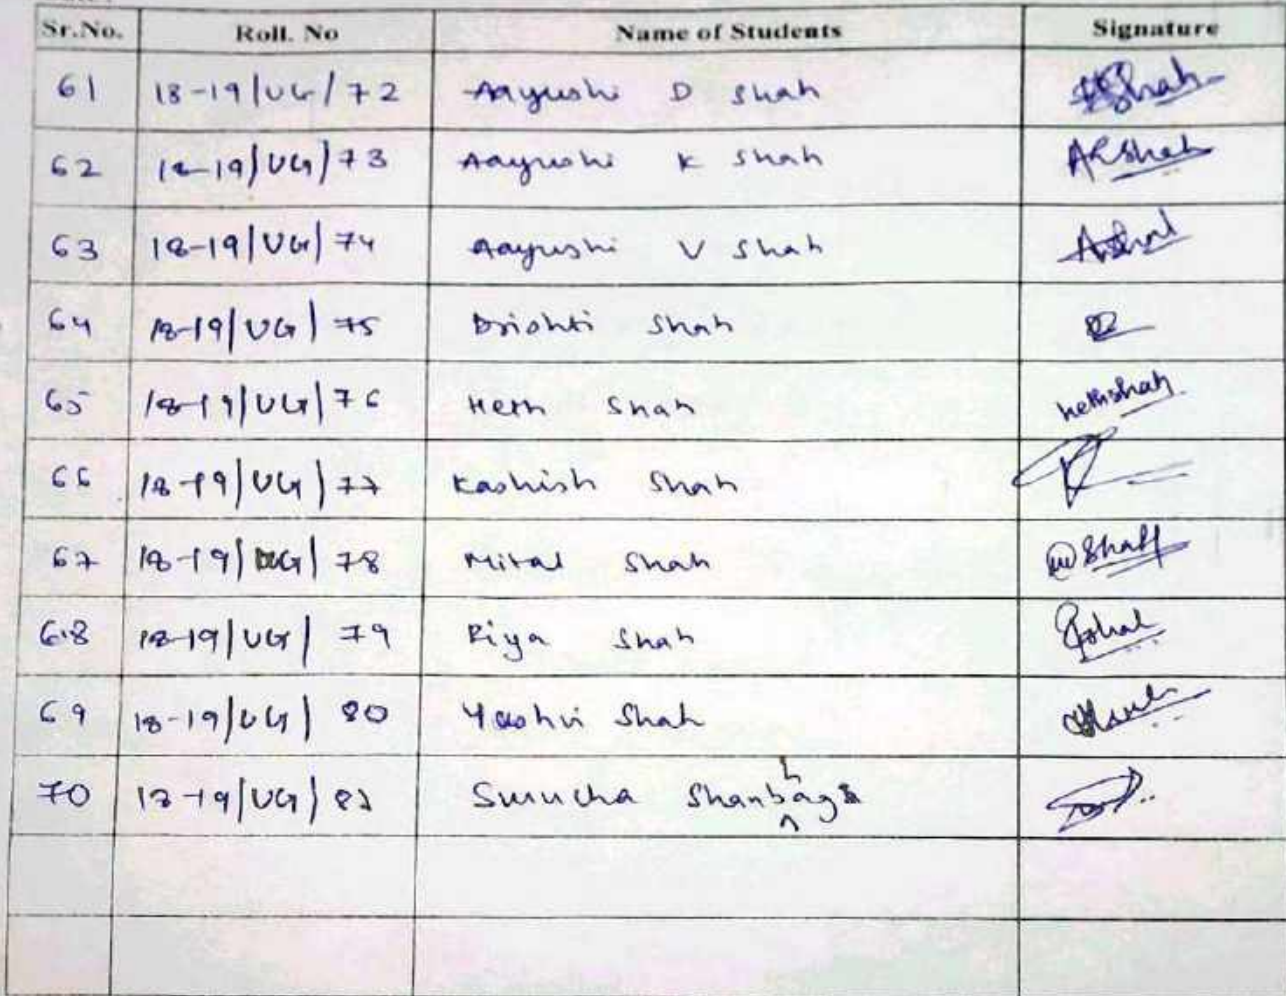 Sr.No. Roll. No Name of Students Signature
61 18-19/UG/72 Aayushi D Shah Shah
62 18-19/UG/73 Aayushi K Shah AKShah
63 18-19/UG/74 Aayushi V Shah AShah
64 18-19/UG/75 Drishti Shah
65 18-19/UG/76 Heth Shah hethshah
66 18-19/UG/77 Kashish Shah
67 18-19/UG/78 Mital Shah
68 18-19/UG/79 Riya Shah
69 18-19/UG/80 Yashvi Shah
70 18-19/UG/82 Shanbhag